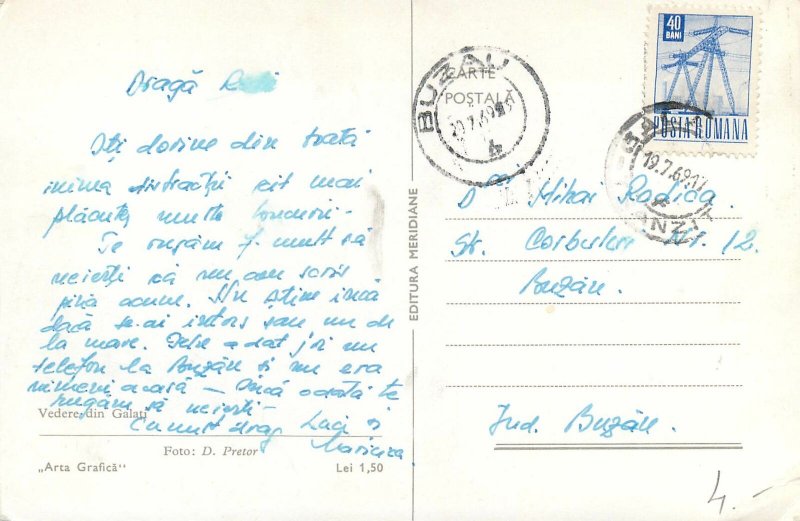 Dragă
Îți dorim din toată
inima distracții cît mai
plăcute, multe bucurii.
Te rugăm f. mult să
ne ierți că nu am scris
pînă acum. Nu știm încă
dacă te-ai întors sau nu de
la mare. a dat și un
telefon la Buzău și nu era
nimeni acasă – Încă odată te
rugăm să ne ierți –
Cu mult drag Luci și
Vedere din Galați
Foto: D. Pretor
„Arta Grafică"
Lei 1,50
EDITURA MERIDIANE
CARTE
POȘTALĂ
BUZAU
20.7.69
4
40
BANI
POSTA ROMANA
19.7.69.17
Mihai Radica.
Str. Corbului Nr. 12.
Buzău.
Jud. Buzău.
4.-